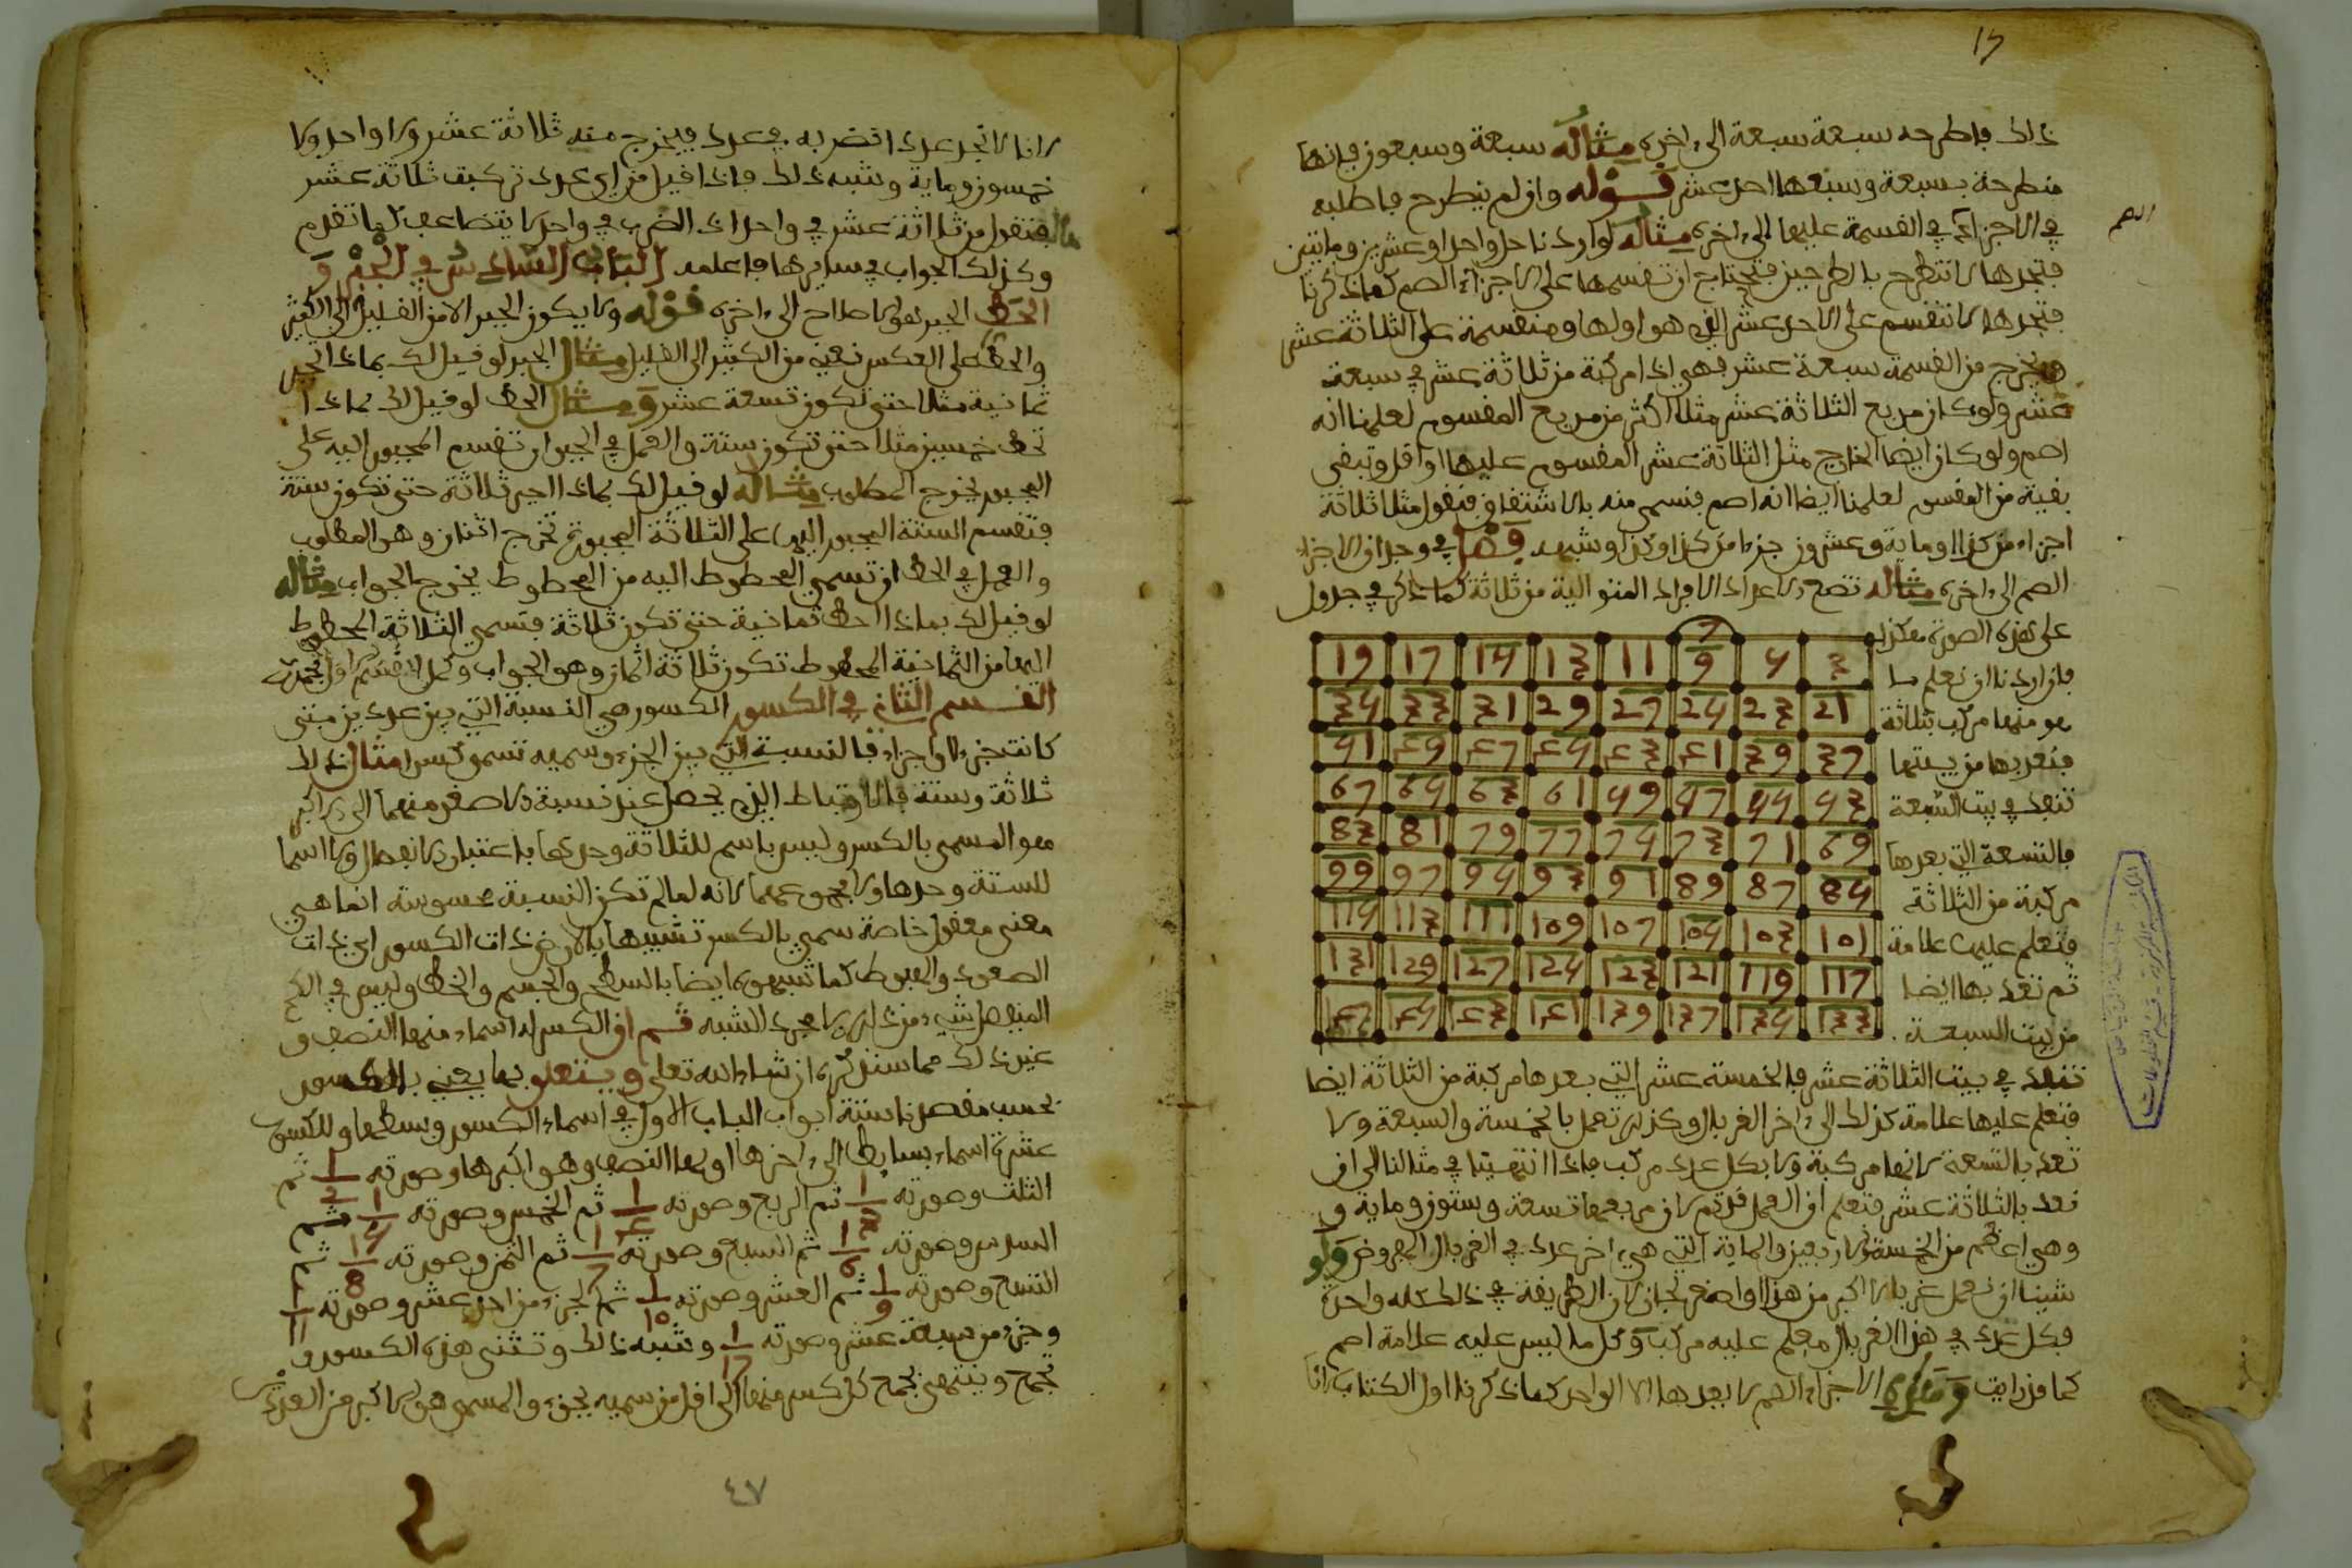 ذلك فاطرحه سبعة سبعة الى اخره مثاله سبعة وسبعون فانها
منطرحة بسبعة وسبعها احد عشر قوله وان لم ينطرح فاطلبه
في الاجزاء في القسمة عليها الى اخره مثاله لو اردنا حل واحد او عشرين ومايتين
فتجدها لا تنطرح بالطرحين فتحتاج ان تقسمها على الاجزاء الصم كما ذكرنا
فتجدها لا تنقسم على الاحد عشر الذي هو اولها ومنقسمة على الثلاثة عشر
يخرج من القسمة سبعة عشر فهي اذا مركبة من ثلاثة عشر في سبعة
عشر ولو كان مربع الثلاثة عشر مثلا اكثر من مربع المقسوم لعلمنا انه
اصم ولو كان ايضا الخارج مثل الثلاثة عشر المقسوم عليها او اقل وتبقى
بقية من المقسوم لعلمنا ايضا انه اصم فنسمي منه بالاشتقاق فنقول مثلا ثلاثة
اجزاء من كذا وماية وعشرون جزءا من كذا وكذا وشبهه فصل في وجدان الاجزاء
الصم الى اخره مثاله تضع الاعداد الافراد المتوالية من ثلاثة كما ذكر في جدول
على هذه الصورة هكذا
فان اردنا ان نعلم ما
هو منها مركب بثلاثة
فنعد بها من بيتها
تنفد في بيت السبعة
فالتسعة التي بعدها
مركبة من الثلاثة
فتعلم عليها علامة
ثم تعد بها ايضا
من بيت التسعة
19 17 15 13 11 9 7 5 3
35 33 31 29 27 25 23 21
51 49 47 45 43 41 39 37
67 65 63 61 59 57 55 53
83 81 79 77 75 73 71 69
99 97 95 93 91 89 87 85
115 113 111 109 107 105 103 101
131 129 127 125 123 121 119 117
147 145 143 141 139 137 135 133
تنفد في بيت الثلاثة عشر فالخمسة عشر التي بعدها مركبة من الثلاثة ايضا
فتعلم عليها علامة كذلك الى اخر الغربال وكذلك تعمل بالخمسة والسبعة ولا
تعد بالتسعة لانها مركبة ولا بكل عدد مركب فاذا انتهينا في مثالنا الى ان
نعد بالثلاثة عشر فتعلم ان العمل قد تم لان مربعها تسعة وستون وماية و
وهي اعظم من الخمسة والاربعين والماية التي هي اخر عدد في الغربال المعروض ولو
شينا ان نعمل غربالا اكبر من هذا او اصغر لجاز لان الطريقة في ذلك كله واحدة
فكل عدد في هذا الغربال معلم عليه مركب وكل ما ليس عليه علامة اصم
كما قد رايت وهذه الاجزاء الصم لا يعدها الا الواحد كما ذكرنا اول الكتاب لانا
لانا لا نجد عددا نضربه في عدد فيخرج منه ثلاثة عشر ولا واحد ولا
خمسون وماية وشبه ذلك فاذا قيل من اي عدد تركبت ثلاثة عشر
فنقول من ثلاثة عشر في واحد اذ الضرب في واحد لا يتضاعف كما تقدم
وكذلك الجواب في سايرها فاعلمه الباب السادس في الجبر و
الحط الجبر هو الاصلاح الى اخره قوله ولا يكون الجبر الا من القليل الى الكثير
والحط على العكس نعني من الكثير الى القليل مثال الجبر لو قيل لك بماذا تجبر
ثمانية مثلا حتى تكون تسعة عشر ومثال الحط لو قيل لك بماذا
تحط خمسين مثلا حتى تكون ستة والعمل في الجبر ان تقسم المجبور اليه على
المجبور يخرج المطلوب مثاله لو قيل لك بماذا اجبر ثلاثة حتى تكون ستة
فتقسم الستة المجبور اليها على الثلاثة المجبورة تخرج اثنان وهو المطلوب
والعمل في الحط ان تسمي المحطوط اليه من المحطوط يخرج الجواب مثاله
لو قيل لك بماذا احط ثمانية حتى تكون ثلاثة فتسمي الثلاثة المحطوط
اليها من الثمانية المحطوط تكون ثلاثة اثمان وهو الجواب وكمل القسم الاول بحمد الله
القسم الثاني في الكسور الكسور هي النسبة التي بين عددين متى
كانت جزءا او اجزاء فالنسبة التي بين الجزء وسميه تسمى كسرا مثال ذلك
ثلاثة وستة فالارتباط الذي يحصل عند نسبة الاصغر منهما الى الاكبر
هو المسمى بالكسر وليس باسم للثلاثة وحدها باعتبار الانفصال ولا اسما
للستة وحدها ولا مجموعهما لانه لما لم تكن النسبة محسوسة انما هي
معنى معقول خاصة سمي بالكسر تشبيها بالارض ذات الكسور اي ذات
الصعود والهبوط كما شبهوه ايضا بالسطح والجسم والخط وليس في الكم
المنفصل شيء من ذلك الا مجرد الشبه قسم ان الكسر له اسماء منها النصف و
غير ذلك مما سنذكره ان شاء الله تعلى ويتعلق بما يعني بالكسور
بحسب مقصدنا ستة ابواب الباب الاول في اسماء الكسور وبسطها وللكسور
عشرة اسماء بسايط الى اخرها اولها النصف وهو اكبرها وصورته 1/2 ثم
الثلث وصورته 1/3 ثم الربع وصورته 1/4 ثم الخمس وصورته 1/5 ثم
السدس وصورته 1/6 ثم السبع وصورته 1/7 ثم الثمن وصورته 1/8 ثم
التسع وصورته 1/9 ثم العشر وصورته 1/10 ثم الجزء من احد عشر وصورته 1/11
وجزء من سبعة عشر وصورته 1/17 وشبه ذلك وتثنى هذه الكسور و
تجمع وينتهي بجمع كل كسر منها الى اقل من سميه بجزء والمسمى هو الاكبر من العددين
٤٧